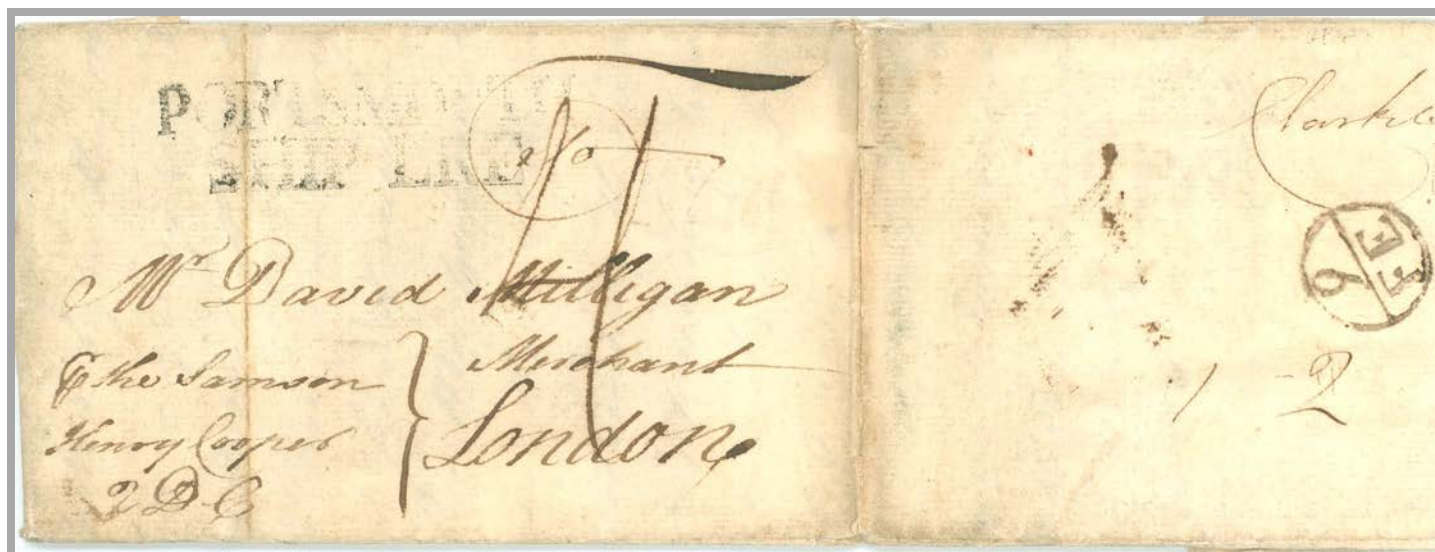 PORTSMOUTH
SHIP LRE
Mr David Milligan
Merchant
London
the Samson
Henry Cooper
2 D C
Clark
6
FE
1 2